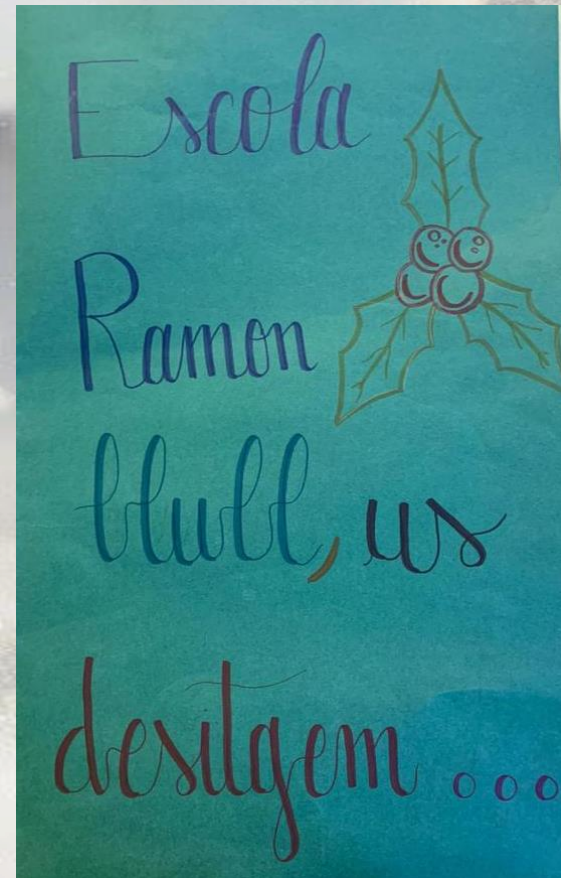 Escola
Ramon
Llull, us
desitgem...